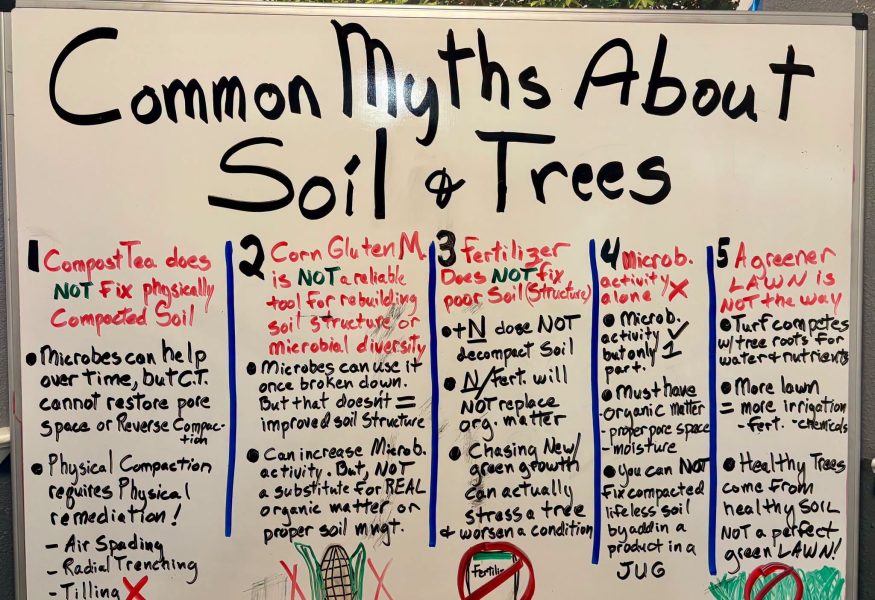 Common Myths About
Soil & Trees
1 Compost Tea does
NOT Fix physically
Compacted Soil
• Microbes can help
over time, but C.T.
cannot restore pore
space or Reverse Compac-
tion
• Physical Compaction
requires Physical
remediation!
- Air Spading
- Radial Trenching
- Tilling X
2 Corn Gluten M.
is NOT a reliable
tool for rebuilding
soil structure or
microbial diversity
• Microbes can use it
once broken down.
But that doesn't =
improved soil structure
• Can increase Microb.
activity. But, NOT
a substitute for REAL
organic matter or
proper soil mngt.
3 Fertilizer
Does NOT fix
poor Soil (Structure)
• +N dose NOT
decompact Soil
• N/Fert. will
NOT replace
org. matter
• Chasing New/
green growth
can actually
stress a tree
& worsen a condition
Fertiliz
4 Microb.
activity
alone X
• Microb.
activity ✓
but only 1
part.
• Must have
- organic matter
- proper pore space
- moisture
• you can NOT
Fix compacted
lifeless soil
by addin a
product in a
JUG
5 A greener
LAWN is
NOT the way
• Turf competes
w/ tree roots for
water & nutrients
• More lawn
= more irrigation
- fert. - chemicals
• Healthy Trees
come From
healthy SOIL
NOT a perfect
green LAWN!